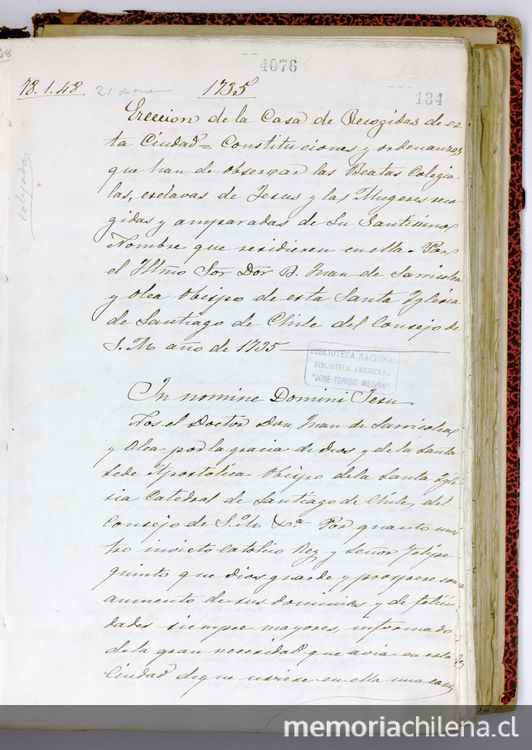 4076
18.1.48. 21 de enero 1735
134
Ereccion de la Casa de Recogidas de es-
ta Ciudad = Constituciones y ordenanzas
que han de observar las Beatas Colegia-
las, esclavas de Jesus y las Mugeres reco-
gidas y amparadas de Su Santisimo
Nombre que residieren en ella. Por
el Iltmo Sor Dor D. Juan de Sarricolea
y Olea Obispo de esta Santa Yglesia
de Santiago de Chile del Consejo de
S. M. año de 1735
BIBLIOTECA NACIONAL
BIBLIOTECA AMERICANA
"JOSÉ TORIBIO MEDINA"
In nomine Domini Jesu
Nos el Doctor Don Juan de Sarricolea
y Olea por la gracia de dios y de la Santa
Sede Apostolica Obispo de la Santa Ygle-
sia Catedral de Santiago de Chile, del
Consejo de S. M. &a. Por quanto nues-
tro invicto catolico Rey y Señor Felipe
quinto que dios guarde y prospere con
aumento de sus dominios y de felici-
dades siempre mayores, informado
de la gran necesidad que avia en esta
Ciudad de que uviese en ella una casa
cotejado
memoriachilena.cl